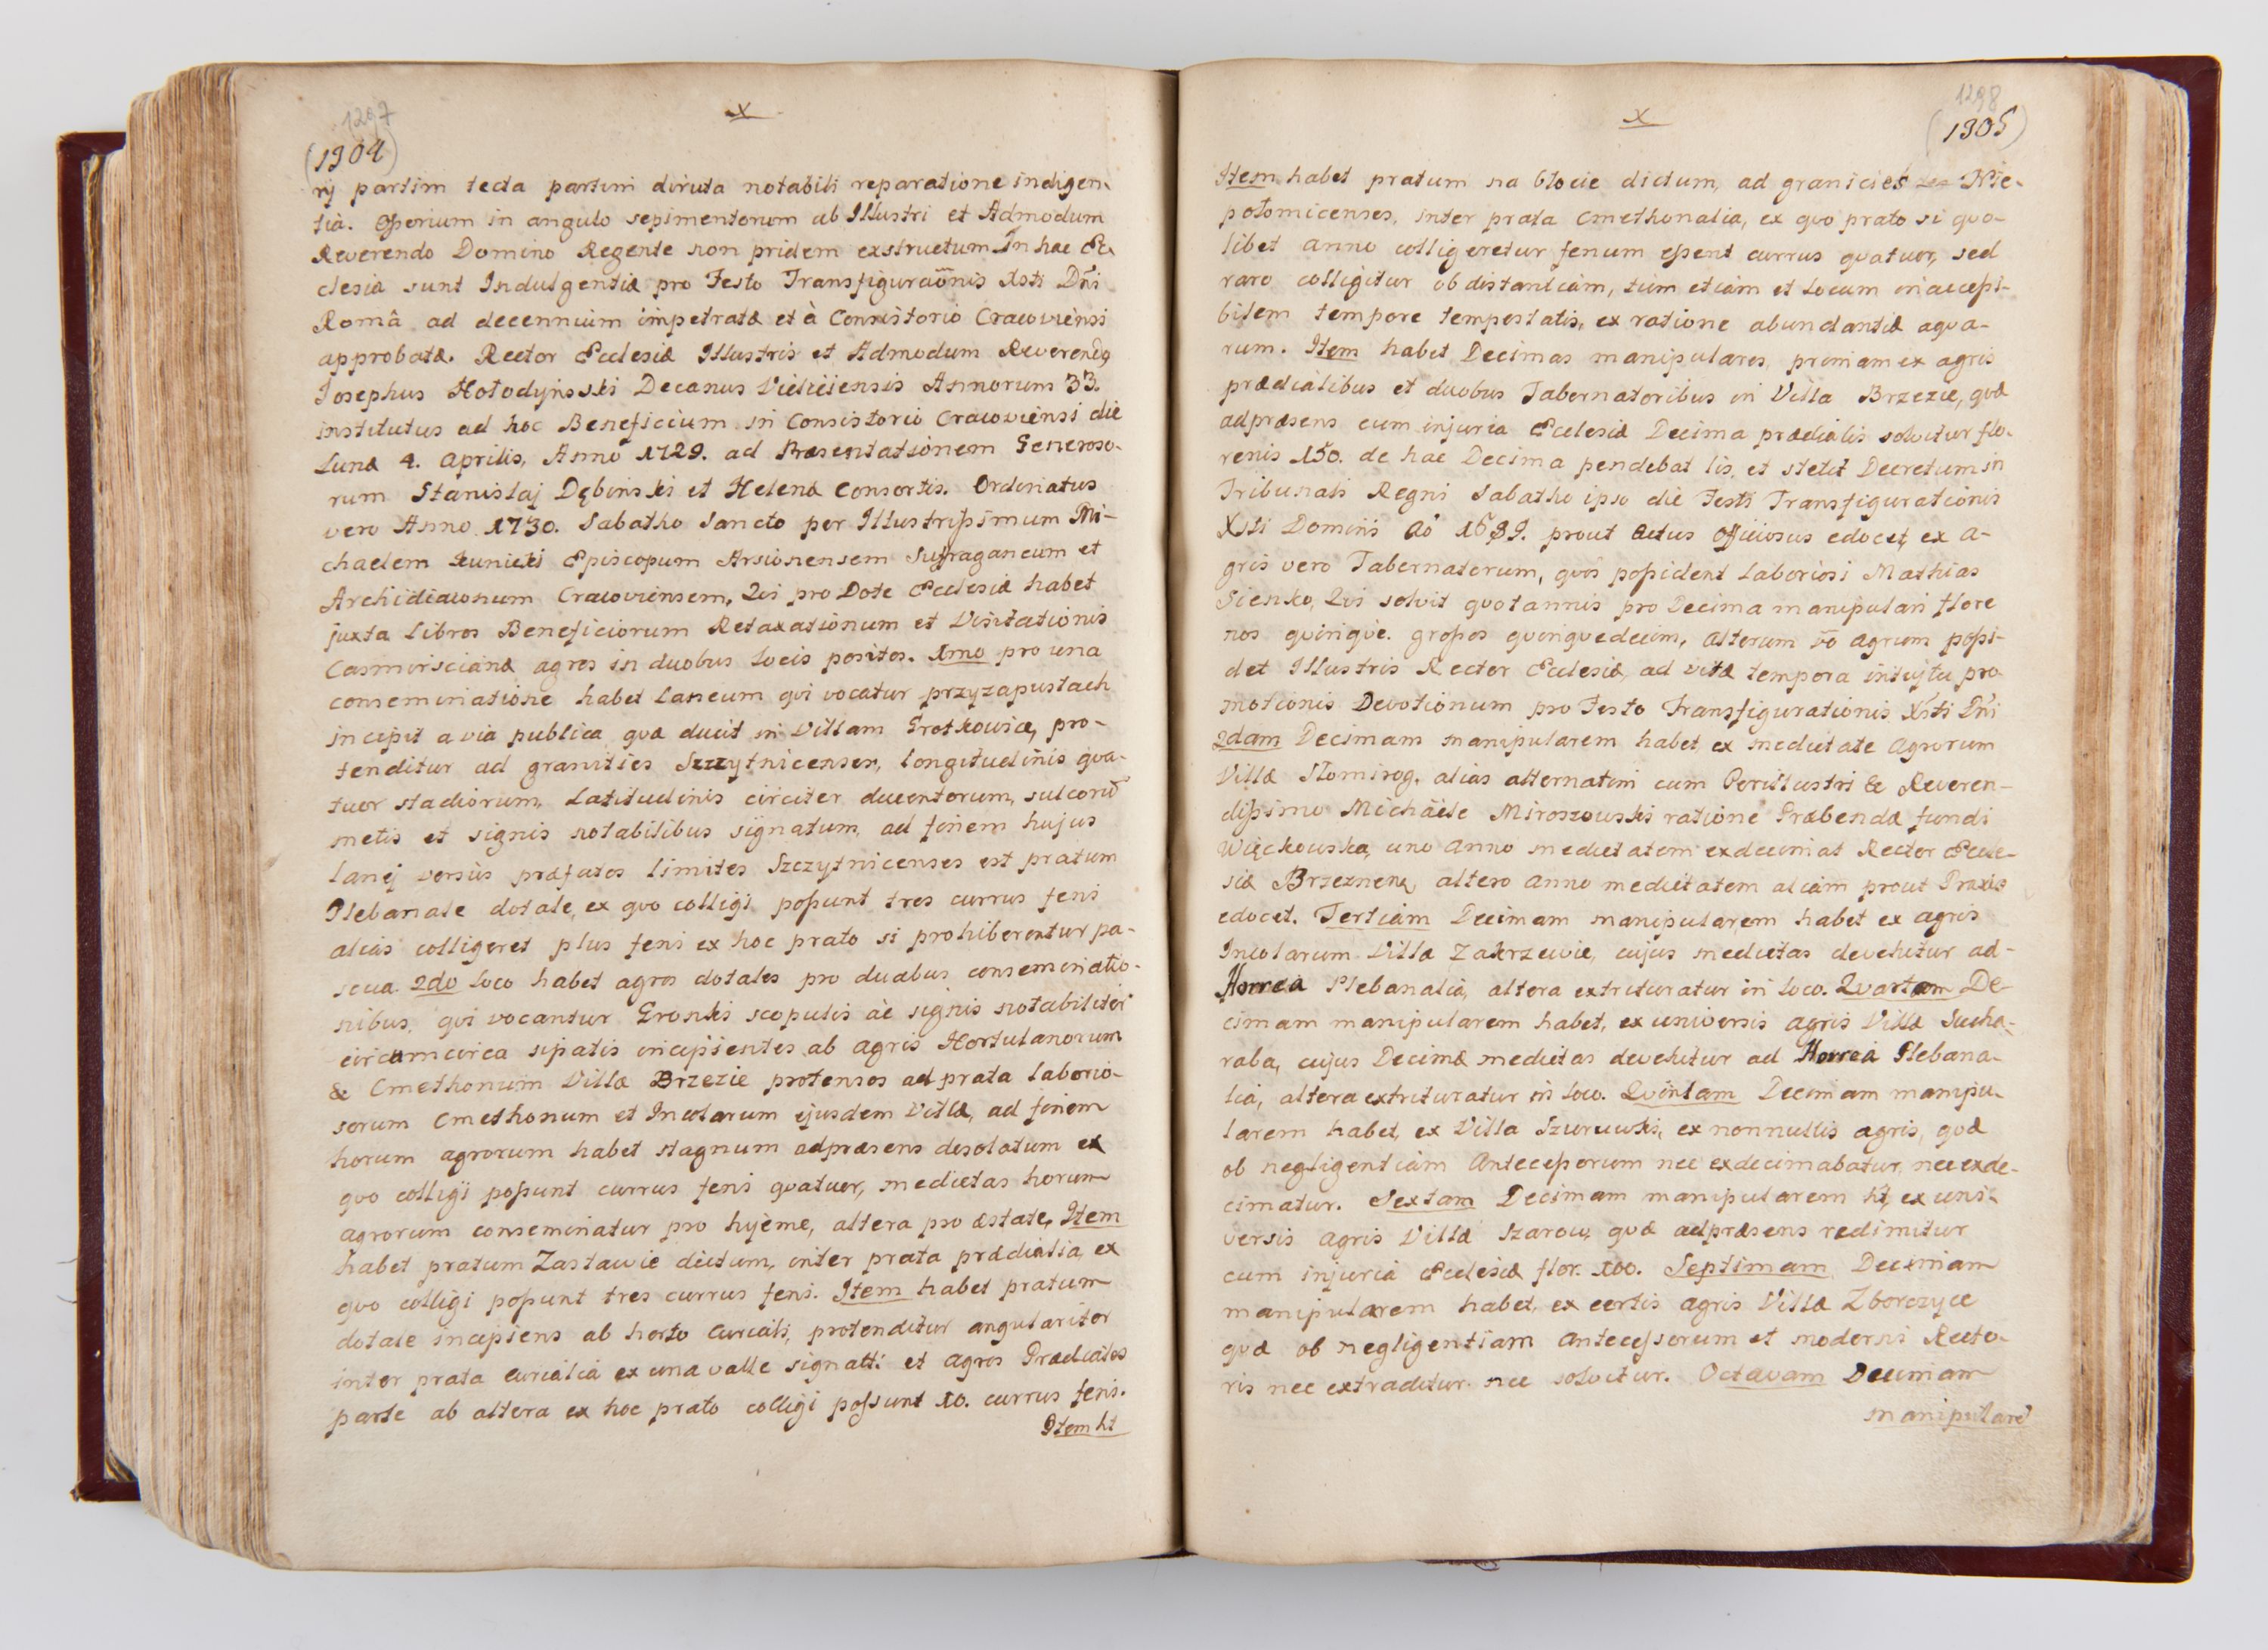 1297
x
(1304)
rÿ partim tecta partim diruta notabili reparatione indigen-
tia. Ossorium in angulo sepimentorum ab Illustri et Admodum
Reverendo Domino Regente non pridem exstructum. In hac Ec-
clesia sunt Indulgentiæ pro Festo Transfiguraõnis Xsti Dñi
Româ ad decennium impetratæ et à Consistorio Cracoviensi
approbatæ. Rector Ecclesiæ Illustris et Admodum Reverend9
Josephus Hołodyński Decanus Vieliciensis Annorum 33.
institutus ad hoc Beneficium in Consistorio Cracoviensi die
Lunæ 4. Aprilis, Anno 1729. ad Præsentationem Generoso-
rum Stanislaj Dębinski et Helenæ Consortis. Ordinatus
vero Anno 1730. Sabatho Sancto per Illustrissimum Mi-
chaelem Kunicki Episcopum Arsionensem Suffraganeum et
Archidiaconum Cracoviensem. Qvi pro Dote Ecclesiæ habet
juxta Libros Beneficiorum Retaxationum et Visitationis
Casmirscianæ agros in duobus locis positos. 1mo pro una
conseminatione habet Laneum qvi vocatur przyzapustach
incipit a via publica qvæ ducit in Villam Grotkowice, pro-
tenditur ad granities Szczytnicenses, longitudinis qva-
tuor stadiorum, Latitudinis circiter ducentorum, sulcorũ
metis et signis notabilibus signatum, ad finem hujus
lanej versus præfatos limites Szczytnicenses est pratum
Plebanale dotale, ex qvo colligi possunt tres currus feni
alias colligeret plus feni ex hoc prato si prohiberentur pa-
scua. 2do loco habet agros dotales pro duabus conseminatio-
nibus, qvi vocantur Gronki scopulis ac signis notabiliter
circumcirca sipatis incipientes ab agris Hortulanorum
& Cmethonum Villæ Brzezie protensos ad prata laborio-
sorum Cmethonum et Incolarum ejusdem Villæ, ad finem
horum agrorum habet stagnum adpræsens desolatum ex
qvo colligi possunt currus feni qvatuor, medietas horum
agrorum conseminatur pro hyeme, altera pro æstate, Item
habet pratum Zastawie dictum, inter prata prædialia ex
qvo colligi possunt tres currus feni. Item habet pratum
dotale incipiens ab horto Curiali, protenditur angulariter
inter prata curialia ex una valle signatti et agros Prædiales
parte ab altera ex hoc prato colligi possunt 10. currus feni.
Item ht
1298
x
(1305)
Item habet pratum na błocie dictum, ad granicies Nie-
połomicenses, inter prata Cmethonalia, ex qvo prato si qvo-
libet anno colligeretur fenum essent currus qvatuor, sed
raro colligitur ob distantiam, tum etiam et locum inaccessi-
bilem tempore tempestatis, ex ratione abundantiæ aqva-
rum. Item habet Decimas manipulares, primam ex agris
prædialibus et duobus Tabernatoribus in Villa Brzezie, qvæ
adpræsens cum injuria Ecclesiæ Decima prædialis solvitur flo-
renis 150. de hac Decima pendebat lis, et stetit Decretum in
Tribunali Regni Sabatho ipso die Festi Transfigurationis
Xsti Domini Aõ 1689. prout Actus Officiosus edocet, ex a-
gris vero Tabernatorum, qvos possident Laboriosi Mathias
Sienko, Qvi solvit qvotannis pro Decima manipulari flore
nos qvinqve. grossos qvinqvedecim, alterum võ Agrum possi-
det Illustris Rector Ecclesiæ, ad vitæ tempora intuitu pro-
motionis Devotionum pro Festo Transfigurationis Xsti Dñi
2dam Decimam manipularem habet ex medietate Agrorum
Villæ Słomirog. alias alternatim cum Perillustri & Reveren-
dissimo Michäele Miroszowski ratione Præbendæ fundi
Więckowska, uno Anno medietatem exdecimat Rector Eccle-
siæ Brzeznen, altero Anno medietatem aliam prout Praxis
edocet. Tertiam Decimam manipularem habet ex Agris
Incolarum Villæ Zakrzewie, cujus medietas devehitur ad-
Horrea Plebanalia, altera extrituratur in loco. Qvartam De-
cimam manipularem habet, ex universis Agris Villæ Sucha-
raba, cujus Decimæ medietas devehitur ad Horrea Plebana-
lia, altera extrituratur in loco. Qvintam Decimam manipu-
larem habet, ex Villa Szarowski, ex nonnullis agris, qvæ
ob negligentiam Antecessorum nec exdecimabatur, nec exde-
cimatur. Sextam Decimam manipularem ht, ex uni-
versis Agris Villæ Szarow, qvæ adpræsens redimitur
cum injuria Ecclesiæ flor. 100. Septimam Decimam
manipularem habet, ex certis agris Villæ Zborczyce
qvæ ob negligentiam Antecessorum et moderni Recto-
ris nec extraditur nec solvitur. Octavam Decimam
manipularẽ